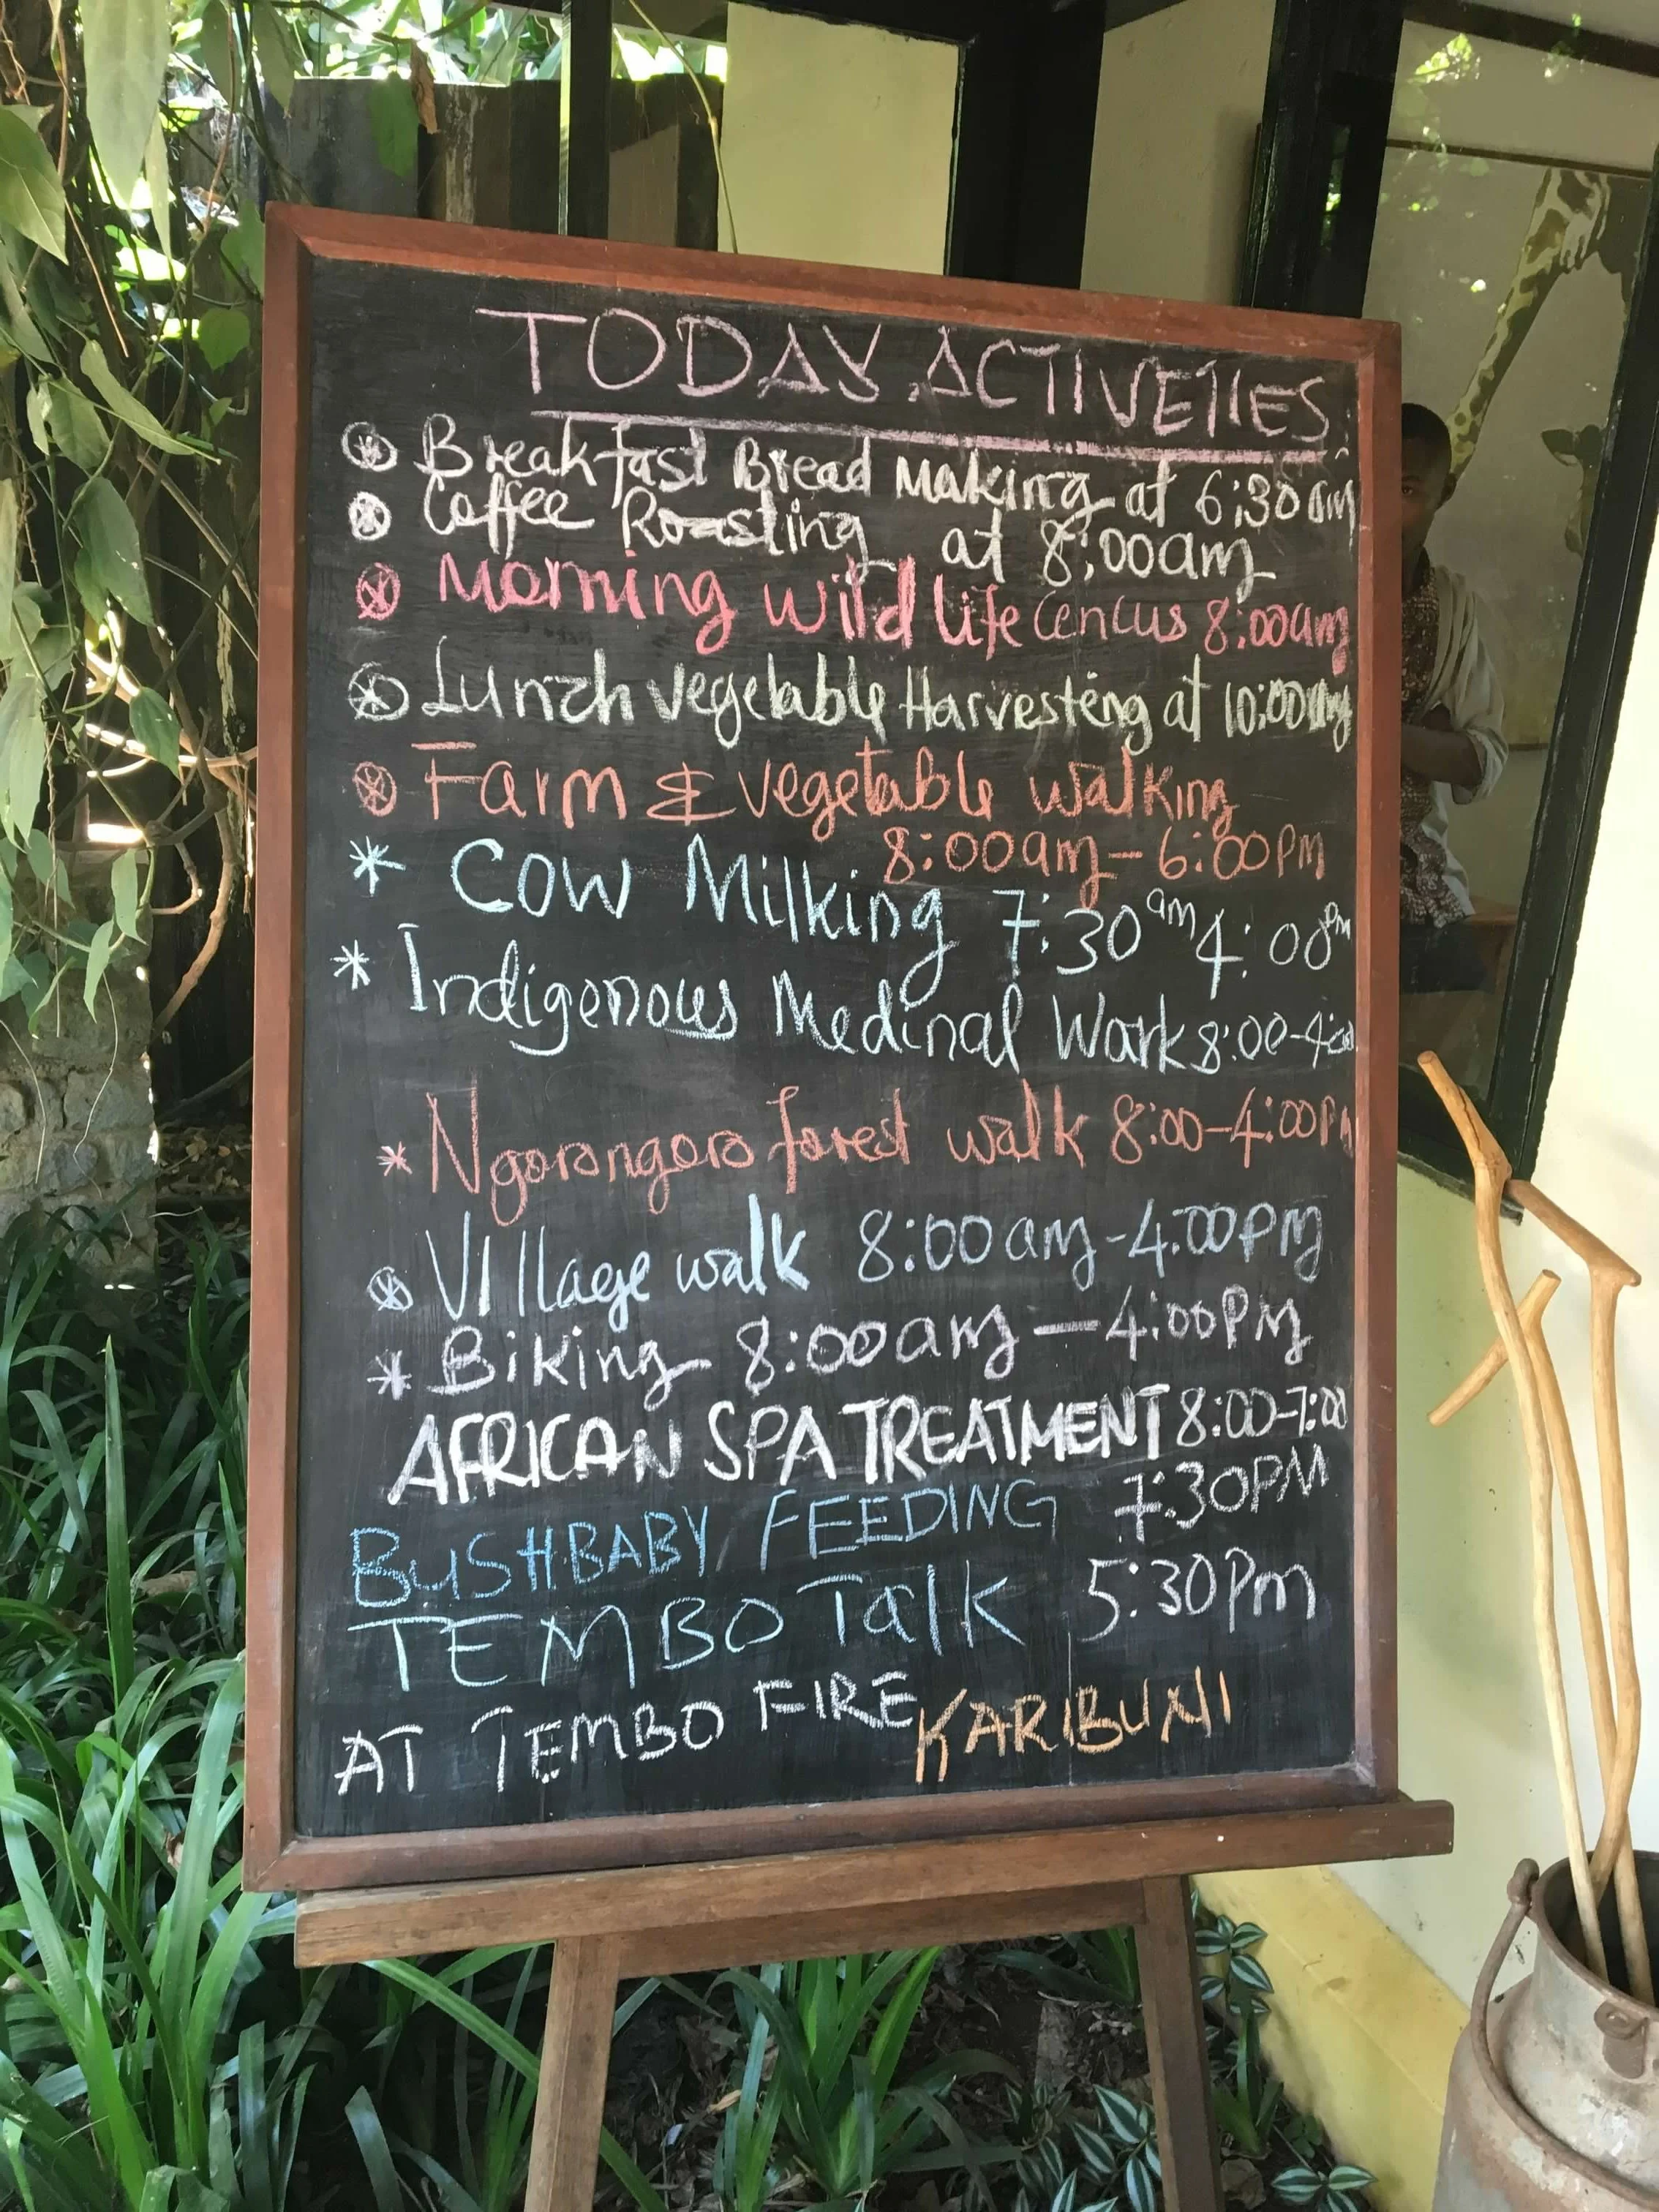 TODAY ACTIVETIES
Breakfast Bread Making at 6:30am
Coffee Roasting at 8:00am
Morning wild life Cencus 8:00am
Lunch vegetable Harvesting at 10:00am
Farm & vegetable walking
8:00am - 6:00pm
* Cow Milking 7:30am 4:00pm
* Indigenous Medinal Work 8:00-4:00
* Ngorongoro forest walk 8:00-4:00pm
Village walk 8:00am-4:00pm
* Biking 8:00am - 4:00PM
AFRICAN SPA TREATMENT 8:00-7:00
BUSHBABY FEEDING 7:30PM
TEMBO Talk 5:30Pm
AT TEMBO FIRE KARIBUNI